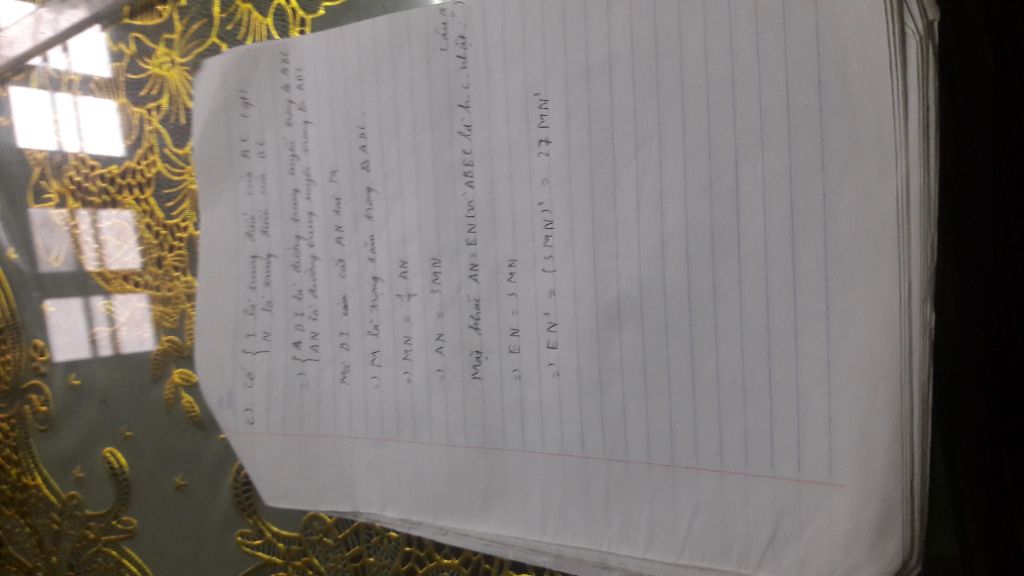 c) Có { I là trung điểm của AC (gt)
N là trung điểm của BC
=) { BI là đường trung tuyến trong Δ ABC
AN là đường trung tuyến trong Δ ABC
Mà BI cắt AN tại M
=) M là trọng tâm trong Δ ABC.
=) MN = 1/3 AN
=) AN = 3MN
Mặt khác AN = EN (vì ABEC là h.c. nhật.)
=) EN = 3 MN
=) EN³ = (3 MN)³ = 27 MN³